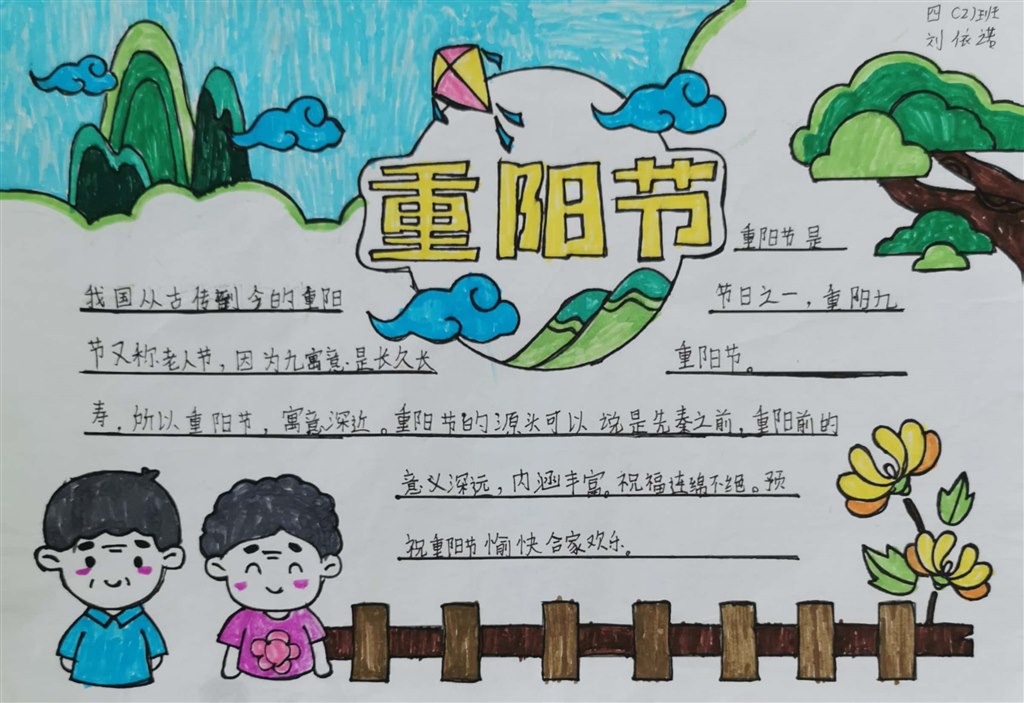 四(2)班
刘依诺
重阳节
重阳节是
我国从古传到今的重阳 节日之一，重阳九
节又称老人节，因为九寓意是长久长 重阳节。
寿.所以重阳节，寓意深近。重阳节的源头可以说是先秦之前，重阳前的
意义深远，内涵丰富。祝福连绵不绝。预
祝重阳节愉快合家欢乐。